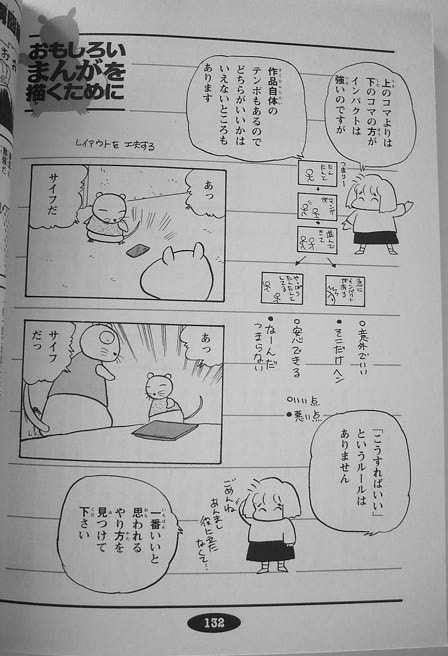 おもしろい
まんがを
描くために
上のコマよりは
下のコマの方が
インパクトは
強いのですが
作品自体の
テンポもあるので
どちらがいいかは
いえないところも
あります
レイアウトを工夫する
つまりー
あっ
サイフだ
あっ
サイフ
だっ
○意外でいい
●そこだけヘン
○安心できる
●なーんだ
つまらない
○いい点
●悪い点
「こうすればいい」
というルールは
ありません
ごめんね
あんまし
役に立た
なくて…
一番いいと
思われる
やり方を
見つけて
下さい
132